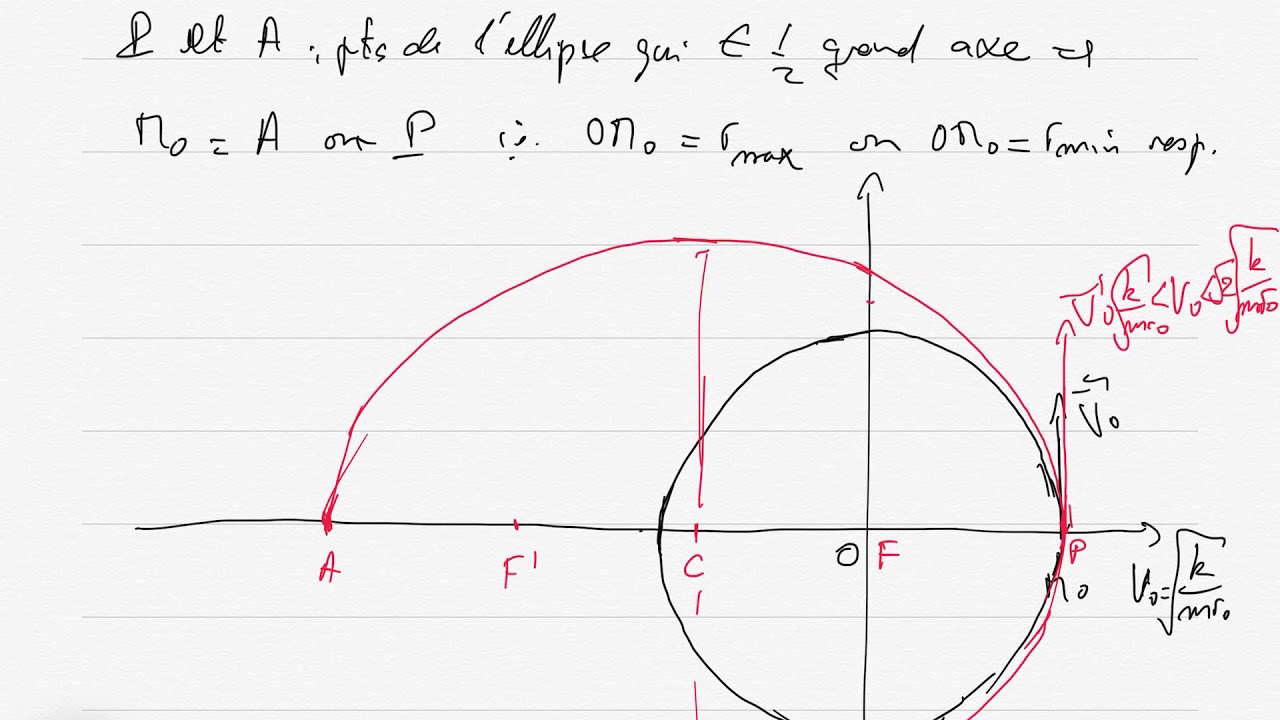 P et A : pts de l'ellipse qui ∈ 1/2 grand axe ⇒
M₀ = A ou P i.e. OM₀ = rmax ou OM₀ = rmin resp.
√(k/mr₀) < V₀ < √2 √(k/mr₀)
V₀
A F' C O F P
M₀ V₀ = √(k/mr₀)